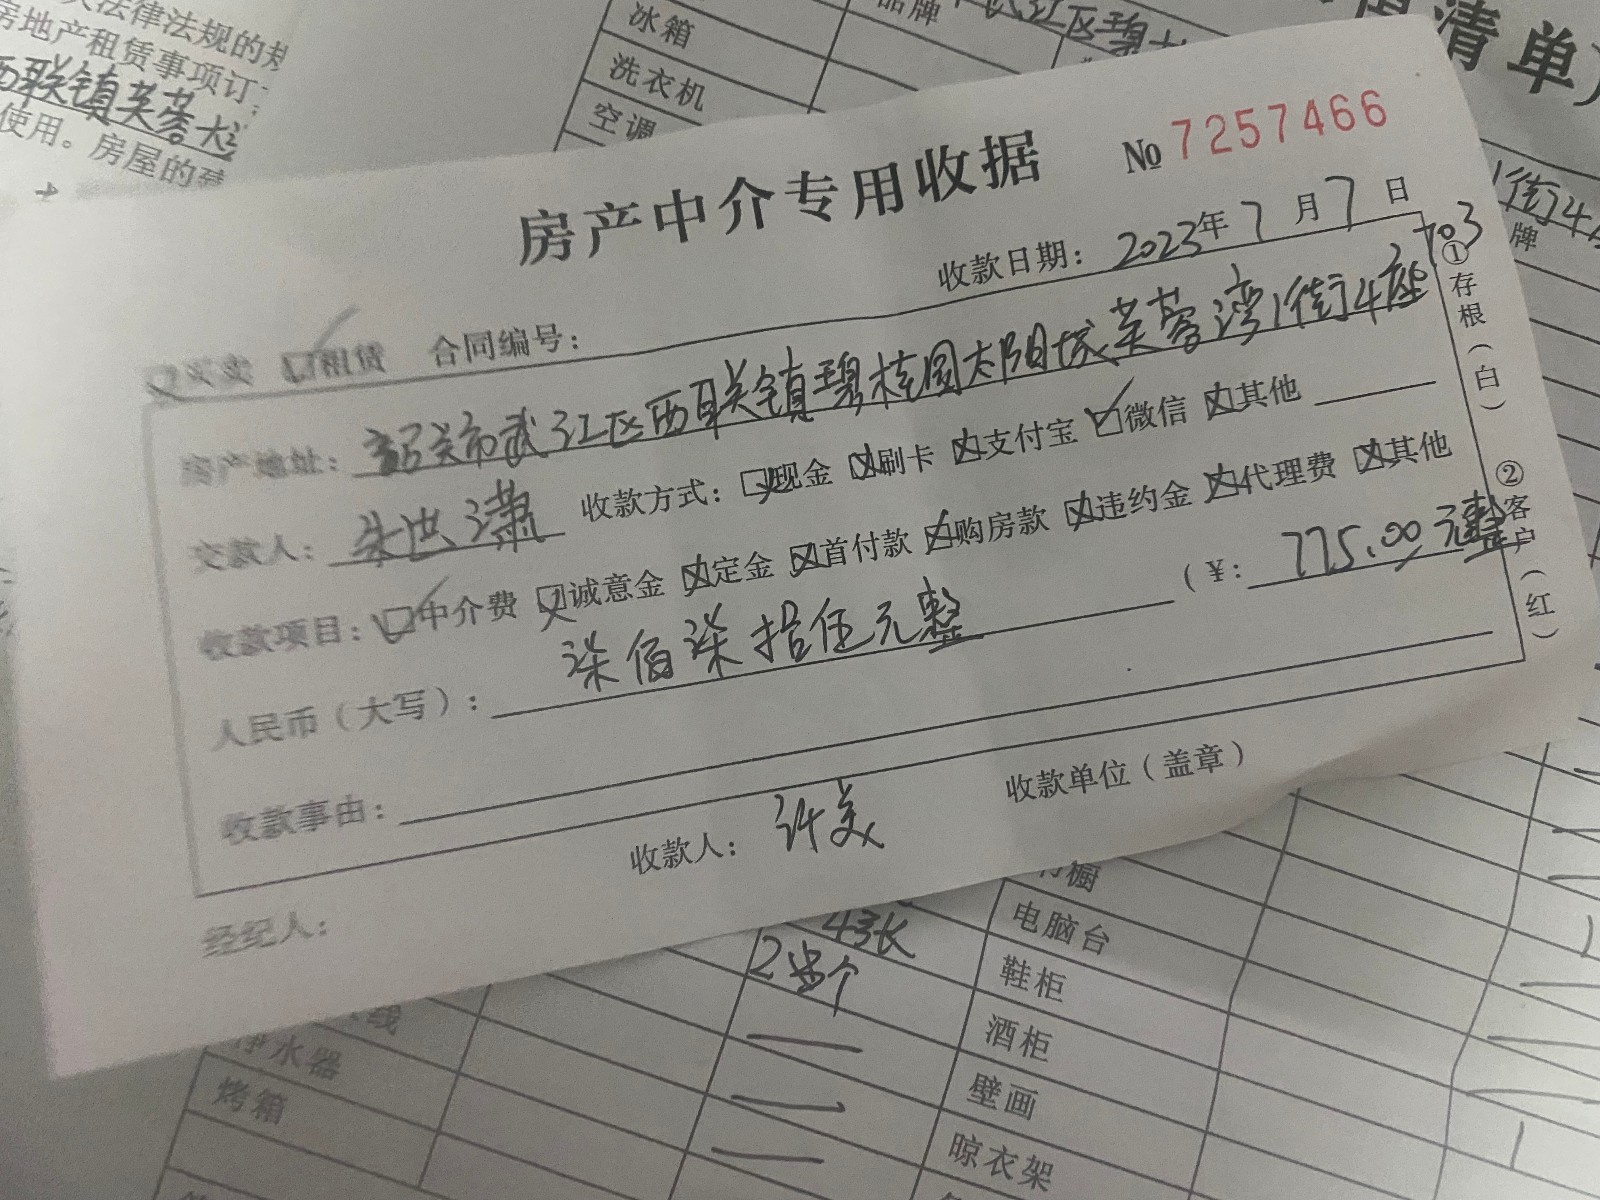 大法律法规的规
房地产租赁事项订立
西联镇芙蓉大道
使用。房屋的建
冰箱
洗衣机
空调
品牌
清单)
牌
房产中介专用收据 No 7257466
收款日期：2023年7月7日
买卖 租赁 合同编号：
房产地址：韶关市武江区西联镇碧桂园太阳城芙蓉湾1街4座703
交款人：朱洪潇 收款方式：现金 刷卡 支付宝 微信 其他
收款项目：中介费 诚意金 定金 首付款 购房款 违约金 代理费 其他
人民币（大写）：柒佰柒拾伍元整 （¥：775.00元整
收款事由：
经纪人： 收款人：许美 收款单位（盖章）
①存根（白） ②客户（红）
电脑台
鞋柜
酒柜
壁画
晾衣架
净水器
烤箱